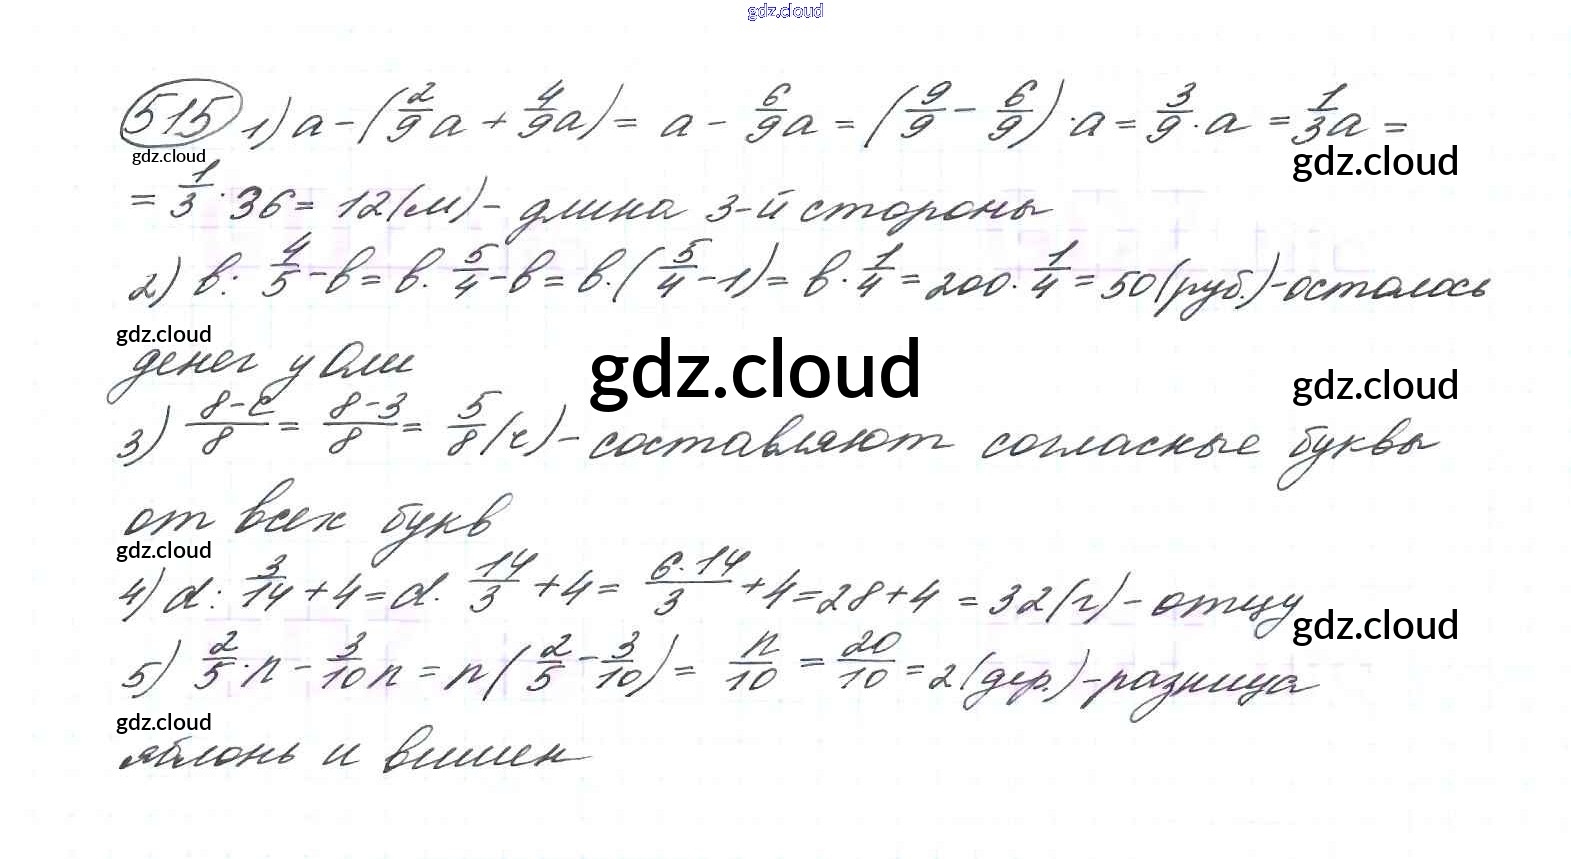 gdz.cloud
515 1) a - (2/9 a + 4/9 a) = a - 6/9 a = (9/9 - 6/9) · a = 3/9 · a = 1/3 a =
gdz.cloud gdz.cloud
= 1/3 · 36 = 12 (м) - длина 3-й стороны
2) в : 4/5 - в = в · 5/4 - в = в · (5/4 - 1) = в · 1/4 = 200 · 1/4 = 50 (руб.) - осталось
gdz.cloud gdz.cloud gdz.cloud
денег у Оли
3) (8-c)/8 = (8-3)/8 = 5/8 (ч) - составляют согласные буквы
от всех букв
gdz.cloud
4) d : 3/14 + 4 = d · 14/3 + 4 = (6·14)/3 + 4 = 28 + 4 = 32 (г) - отцу
gdz.cloud
5) 2/5 · n - 3/10 n = n (2/5 - 3/10) = n/10 = 20/10 = 2 (дер.) - разница
gdz.cloud
яблонь и вишен